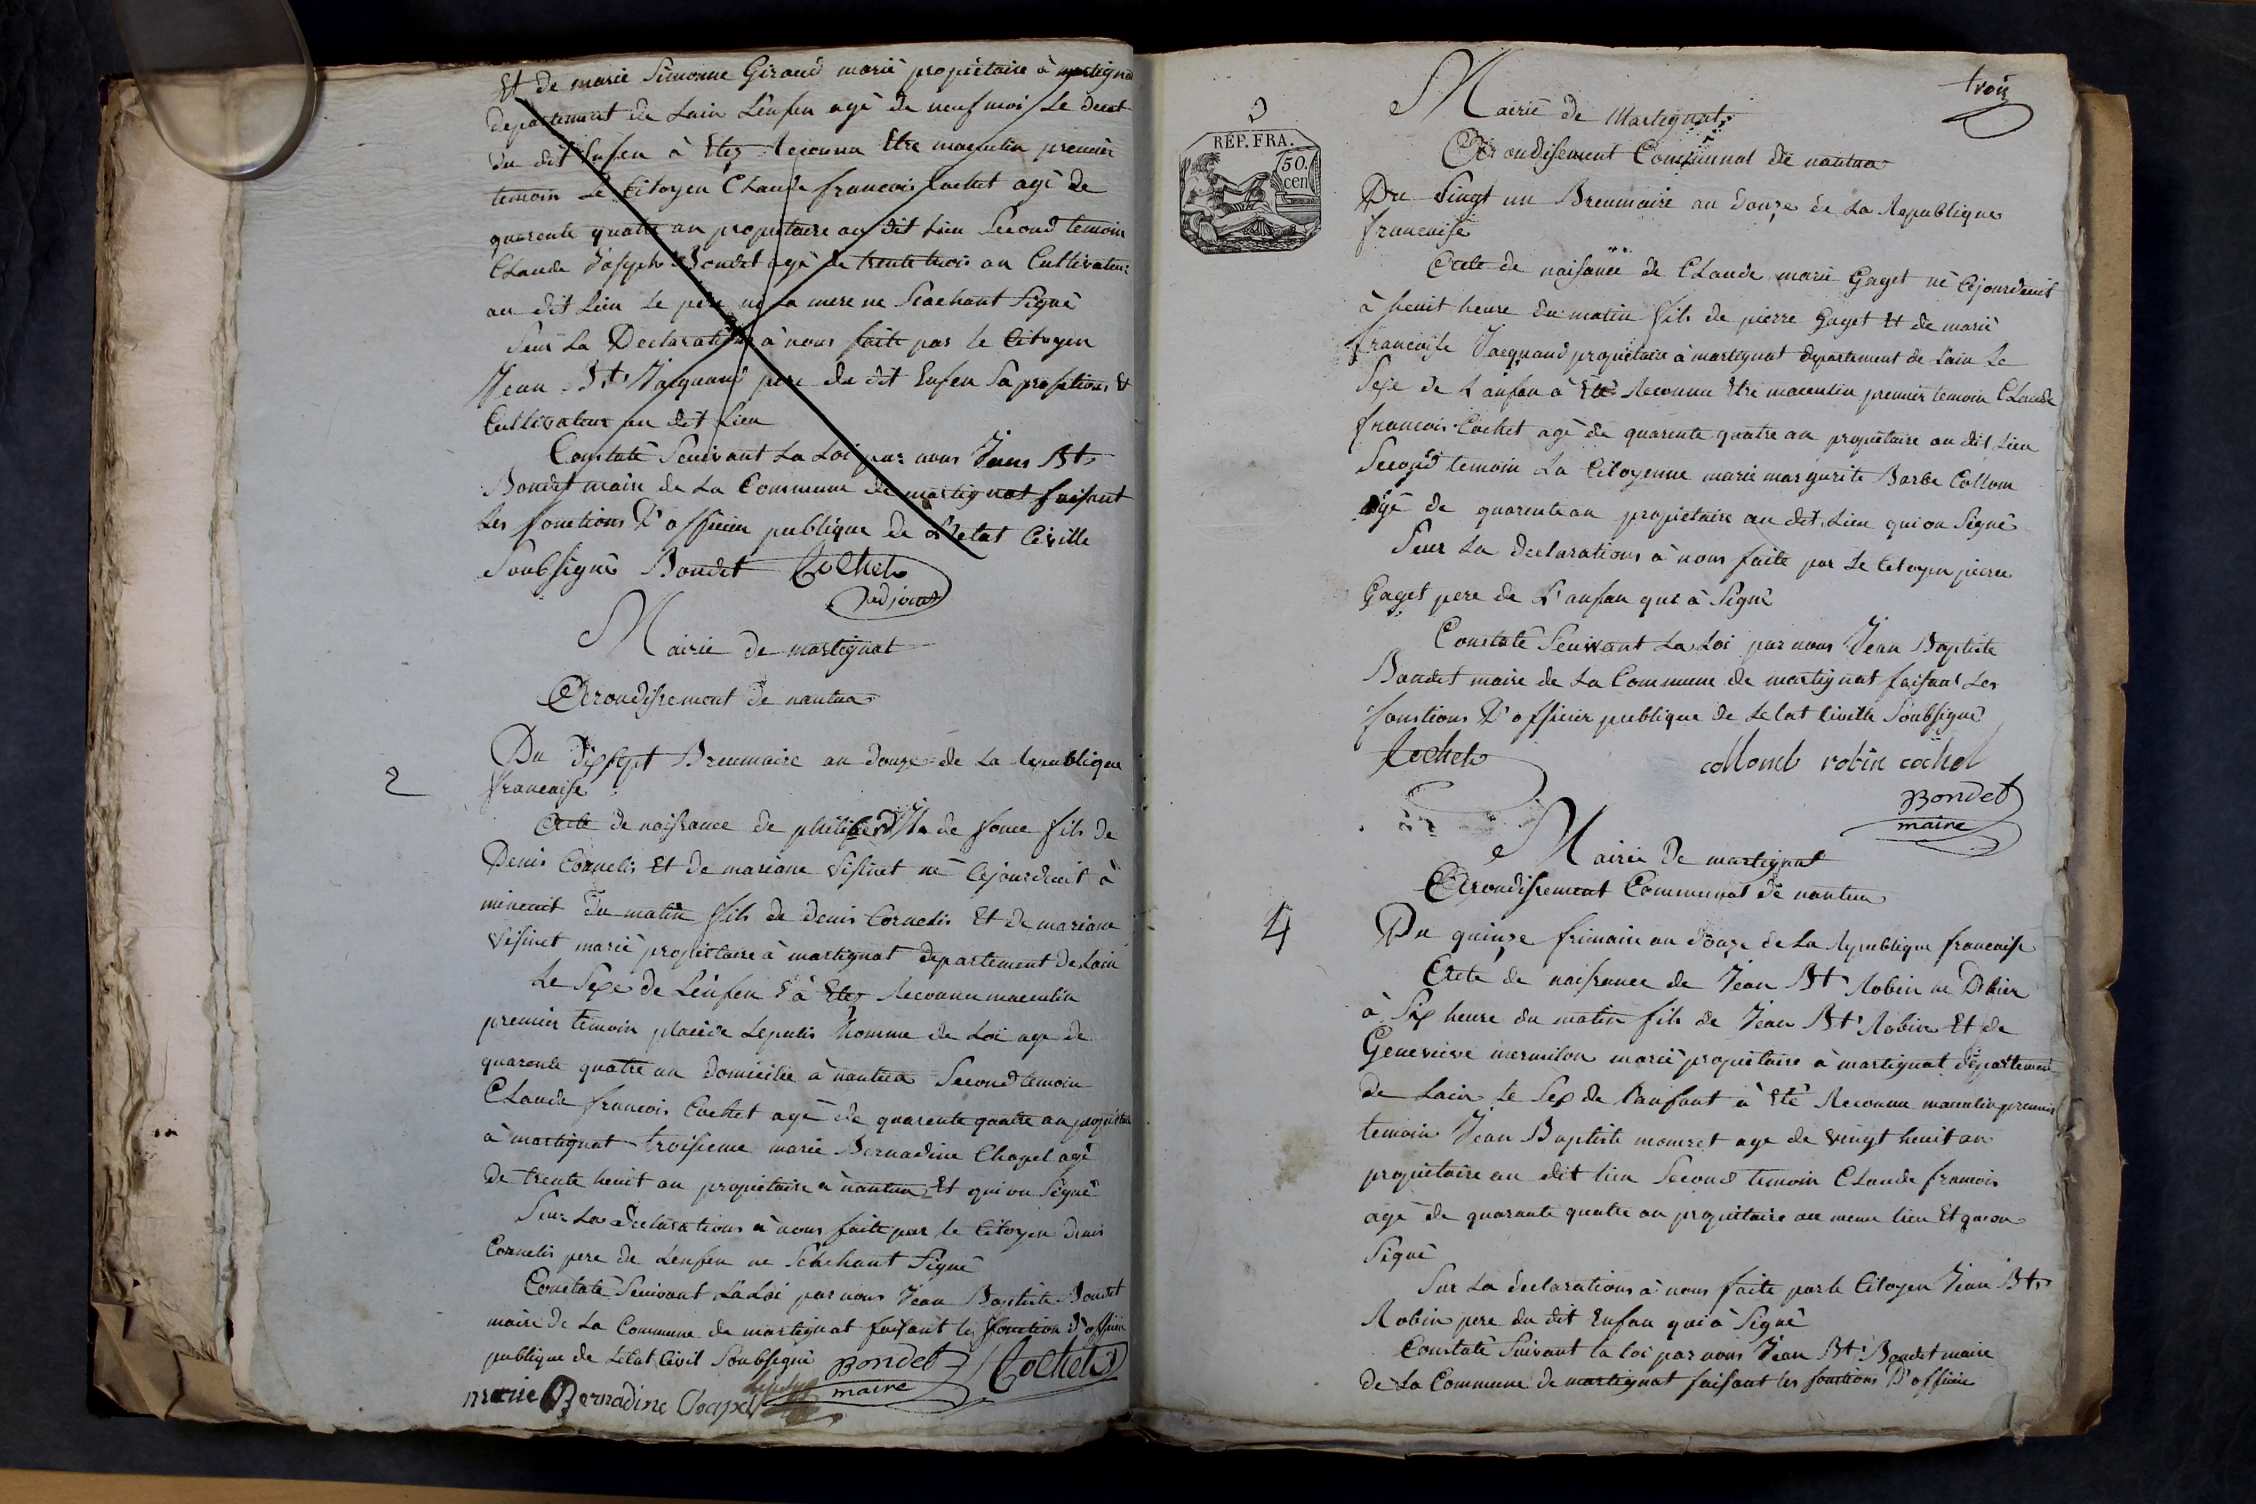 Et de marie Simonne Giraud marié propiétaire à martignat
departement de Lain Lénfen agé de neuf mois Le
du dit Enfen à Etez Reconnu Etre masculin premier
temoin Le Citoyen Claude francois Cochet agé de
quarente quatre an propietaire au dit Lieu Second temoin
Claude Joseph Bondet agé de trente trois an Cultivateur
au dit Lieu Le père ni La mere ne Seachant Signé
Seur La Declarations à nous faite par le Citoyen
Jean Bt Jacquand pere du dit Enfen Sa profetions Et
Cultivateur au dit Lieu
Constaté Seuivant La Loi par nous Jean Bt
Bondet maire de La Commune de martignat faisant
Les fonctions D'officier publique de Letat Civille
Soubsigné Bondet Cochet
adjoint
Mairie de martignat
Arondissement de nantua
2
Du dixsept Breumaire an douze de La Republique
francaise
Acte de naissance de de fils de
Denis Cornelis Et de mariane Visinet né Cejourdeuit à
mineuit du matin fils de denis Cornelis Et de mariane
Visinet marié propietaire à martignat departement de Lain
Le Sexe de Lénfen à Etez Reconnu masculin
premier temoin placide Leputis homme de Loi age de
quarente quatre an domicilié à nantua Second temoin
Claude francois Cochet agé de quarente quatre an propietaire
à martignat troisieme marie Bernadine Chapel agé
de trente heuit an propietaire à nantua Et qui on Signé
Seur La declarations à nous faite par le Citoyen denis
Cornelis pere de Lenfen ne Signé
Constaté Seuivant La Loi par nous Jean Baptiste Bondet
maire de La Commune de martignat faisant les fonction d'officier
publique de Letat Civil Soubsigné Bondet Cochet
maire
marie Bernadine Chapel
trois
3
RÉP. FRA.
50.
cen
Mairie de Martignat
Arondisement Communal de nantua
Du Vingt un Breumaire an douze de La Republique
francaise
Acte de naisance de Claude marie Gaget né Cejourdeuit
à heuit heure du matin fils de pierre Gaget Et de marie
francoise Jacquand propietaire à martignat departement de Lain Le
Sexe de L'anfan à Eté Reconnu Etre masculin premier temoin Claude
francois Cochet agé de quarente quatre an propietaire au dit Lieu
Second temoin La Citoyenne marie margurite Barbe Collom
agé de quarente an propietaire au dit Lieu qui on Signé
Seur La declarations à nous faite par Le Citoyen pierre
Gaget pere de L'anfan qui à Signé
Constaté Seuivant La Loi par nous Jean Baptiste
Bondet maire de La Commune de martignat faisant Les
fonctions D'officier publique de Letat Civille Soubsigné
Cochet collomb robin cochet
Bondet
maire
Mairie de martignat
Arondissement Communal de nantua
4
Du quinze frimaire an douze de La Republique francaise
Acte de naissance de Jean Bt Robin né
à Six heure du matin fils de Jean Bt Robin Et de
Genevieve mermilon marié propietaire à martignat departement
de Lain Le Sex de Lanfant à Eté Reconnu masculin premier
temoin Jean Baptiste age de vingt heuit an
propietaire au dit lieu Second temoin Claude francois
agé de quarante quatre an propietaire au meme lieu Et qui on
Signé
Sur La declarations à nous faite par le Citoyen Jean Bt
Robin pere du dit Enfan qui à Signé
Constaté Suivant la loi par nous Jean Bt Bondet maire
de La Commune de martignat faisant les fonctions D'officier